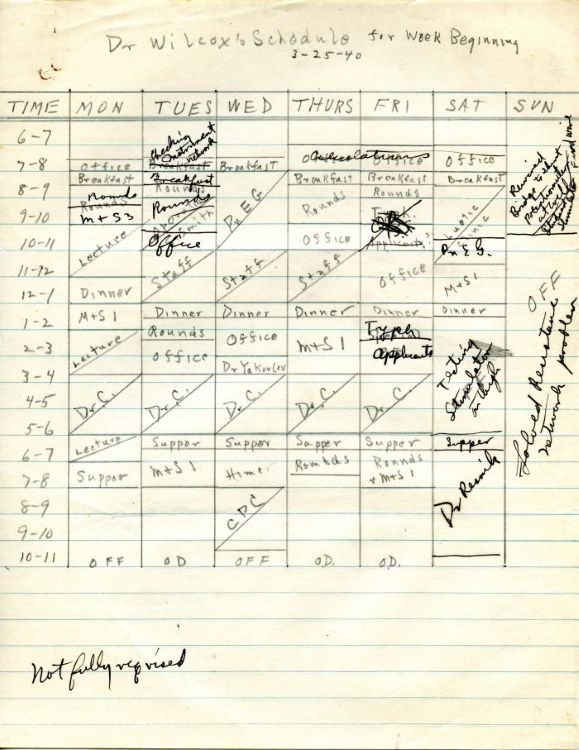 Dr Wilcox's Schedule for Week Beginning
3-25-40
TIME MON TUES WED THURS FRI SAT SUN
6-7
Checking
Instrument
7-8 Office Breakfast Breakfast Office Office
Breakfast Breakfast Breakfast Breakfast Breakfast
8-9 Rounds Rounds PnEG Rounds Rounds
Rounds Rounds
9-10 M+S3 Smith
Lecture Office Office Applicants Clinic
10-11 PnEG.
11-12 Staff Staff Staff Office
12-1 Dinner M+S1 OFF
1-2 M+S1 Dinner Dinner Dinner Dinner Dinner
Rounds Office M+S1 Typh
2-3 Lecture Office Applicants
3-4 Dr Yakovlev
Testing
Stimulation
on thigh
4-5 Dr. C. Dr. C. Dr. C. Dr. C. Dr. C.
5-6
6-7 Lecture Supper Supper Supper Supper Supper
7-8 Supper M+S1 Home Rounds Rounds
+ M+S1
Dr Resnik
8-9
CPC
9-10
10-11 OFF OD OFF OD. OD.
Bridge
Solved Resistance
network problem
Not fully reqrised